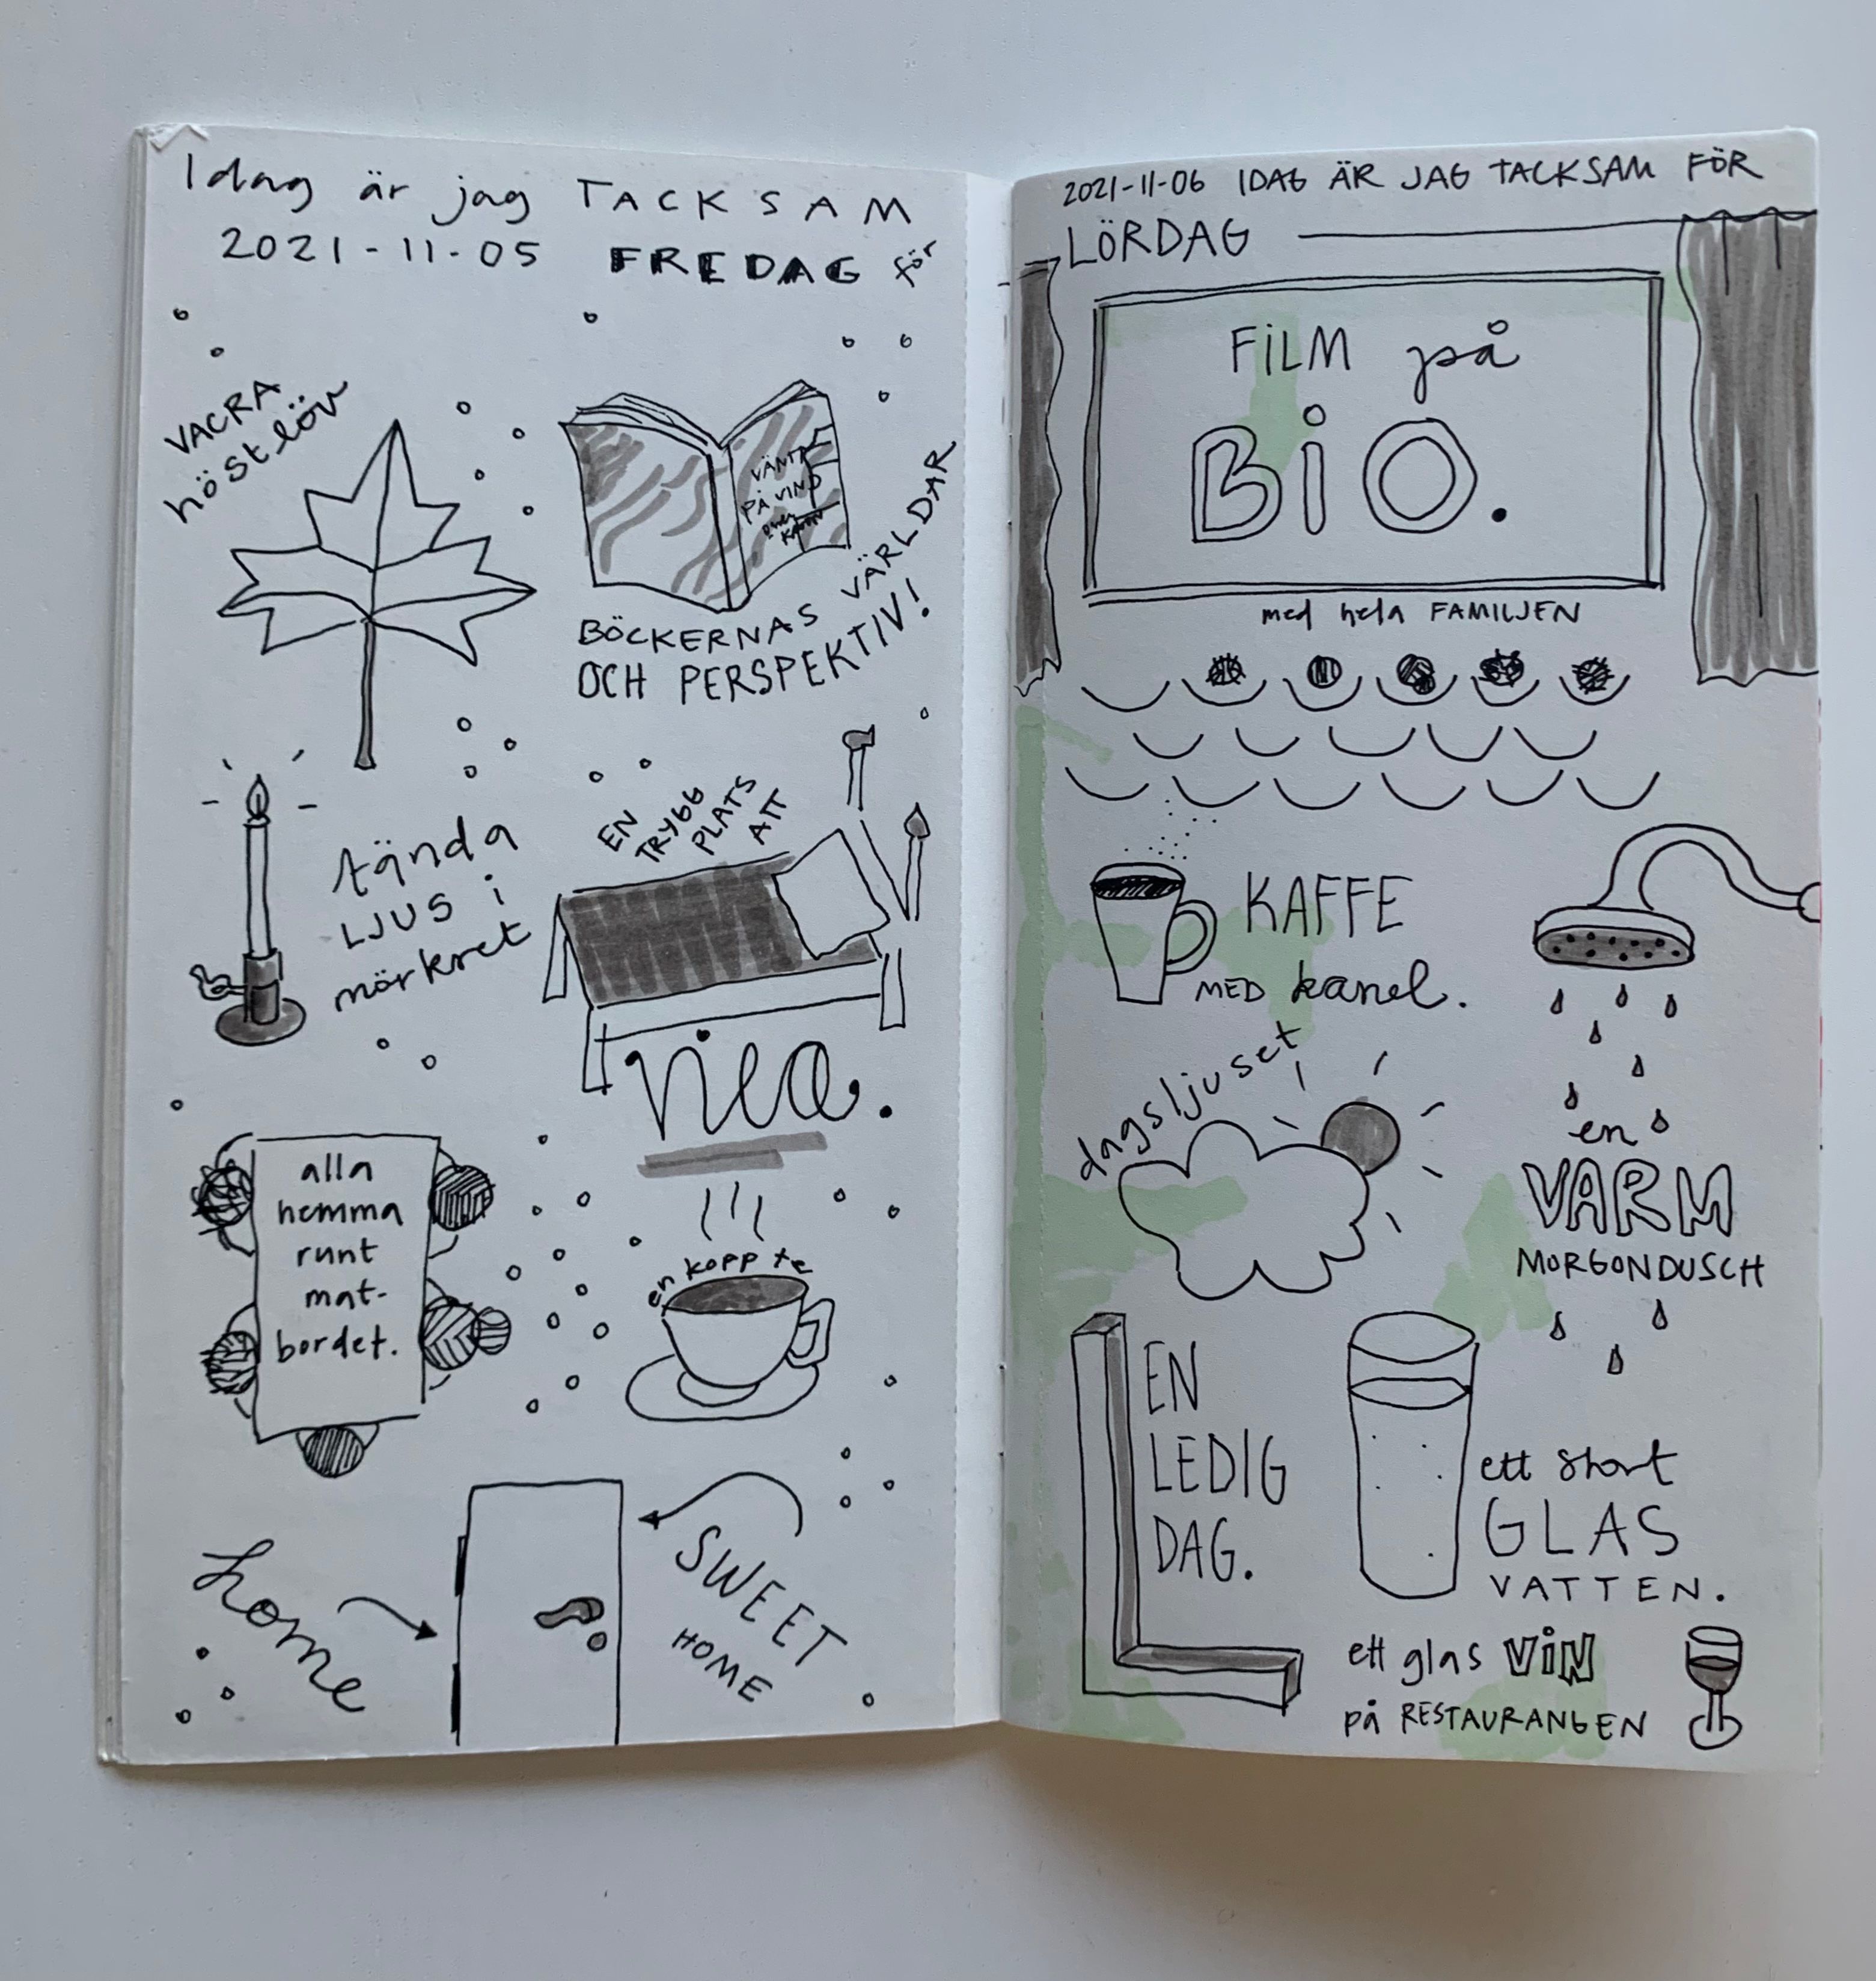 Idag är jag TACKSAM
2021-11-05 FREDAG för
VACRA
höstlöv
VÄNTA
PÅ VIND
BÖCKERNAS VÄRLDAR
OCH PERSPEKTIV!
tända
LJUS i
mörkret
EN
TRYGG
PLATS
ATT
vila.
alla
hemma
runt
mat-
bordet.
en kopp te
home
SWEET
HOME
2021-11-06 IDAG ÄR JAG TACKSAM FÖR
LÖRDAG
FILM på
BIO.
med hela FAMILJEN
KAFFE
MED kanel.
dagsljuset
en
VARM
MORGONDUSCH
EN
LEDIG
DAG.
ett stort
GLAS
VATTEN.
ett glas ViN
på RESTAURANGEN